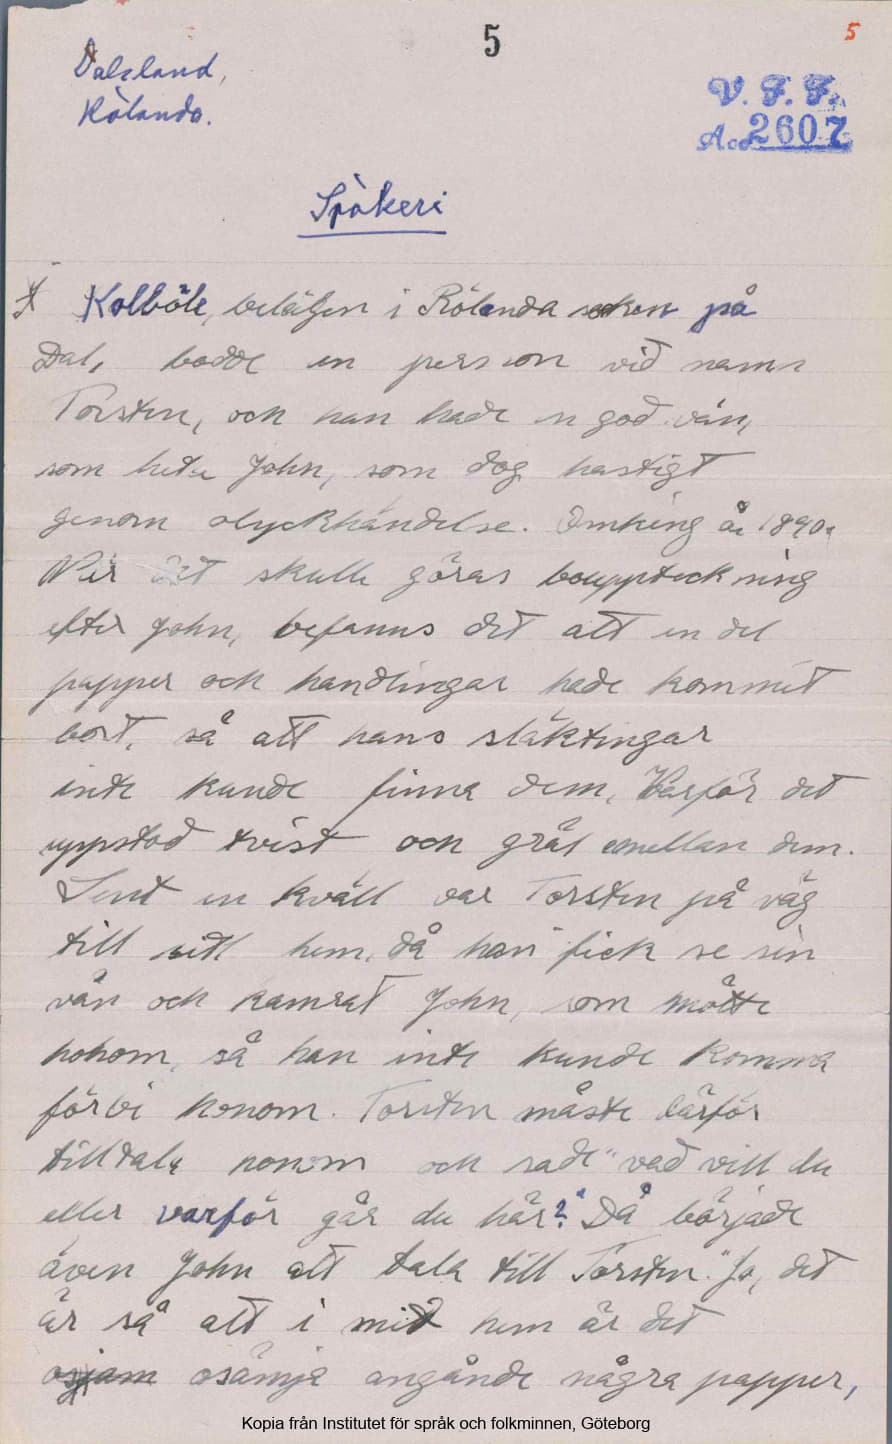 5
5
Dalsland,
Rölanda.
V. F. F.
Acc 2607
Spökeri
I Kolböle, belägen i Rölanda soken på
Dal, bodde en person vid namn
Torsten, och han hade en god vän,
som hete John, som dog hastigt
genom olyckhändelse. Omking år 1890.
När det skulle göras bouppteckning
efter John, befanns det att en del
papper och handlingar hade kommit
bort, så att hans släktingar
inte kunde finna dem, Varför det
uppstod tvist och gräl emellan dem.
Sent en kväll var Torsten på väg
till sitt hem, då han fick se sin
vän och kamrat John, som mötte
honom, så han inte kunde komma
förbi honom. Torsten måste därför
tilltala honom och sade "vad vill du
eller varför går du här?" Då började
även John att tala till Torsten. "Jo, det
är så att i mitt hem är det
osämja angående några papper,
Kopia från Institutet för språk och folkminnen, Göteborg